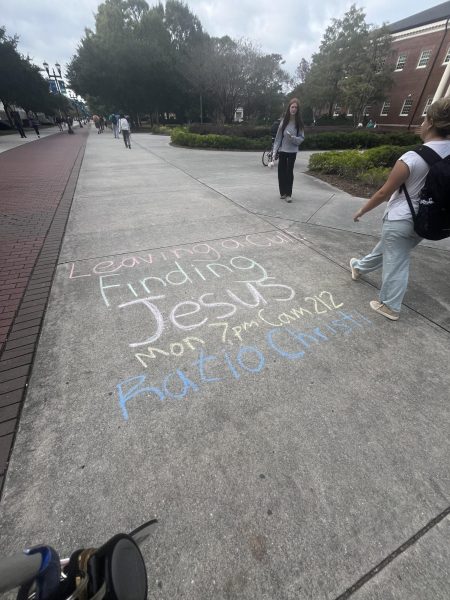 Leaving a Cult
Finding
Jesus
mon 7pm Cam 212
Ratio Christi